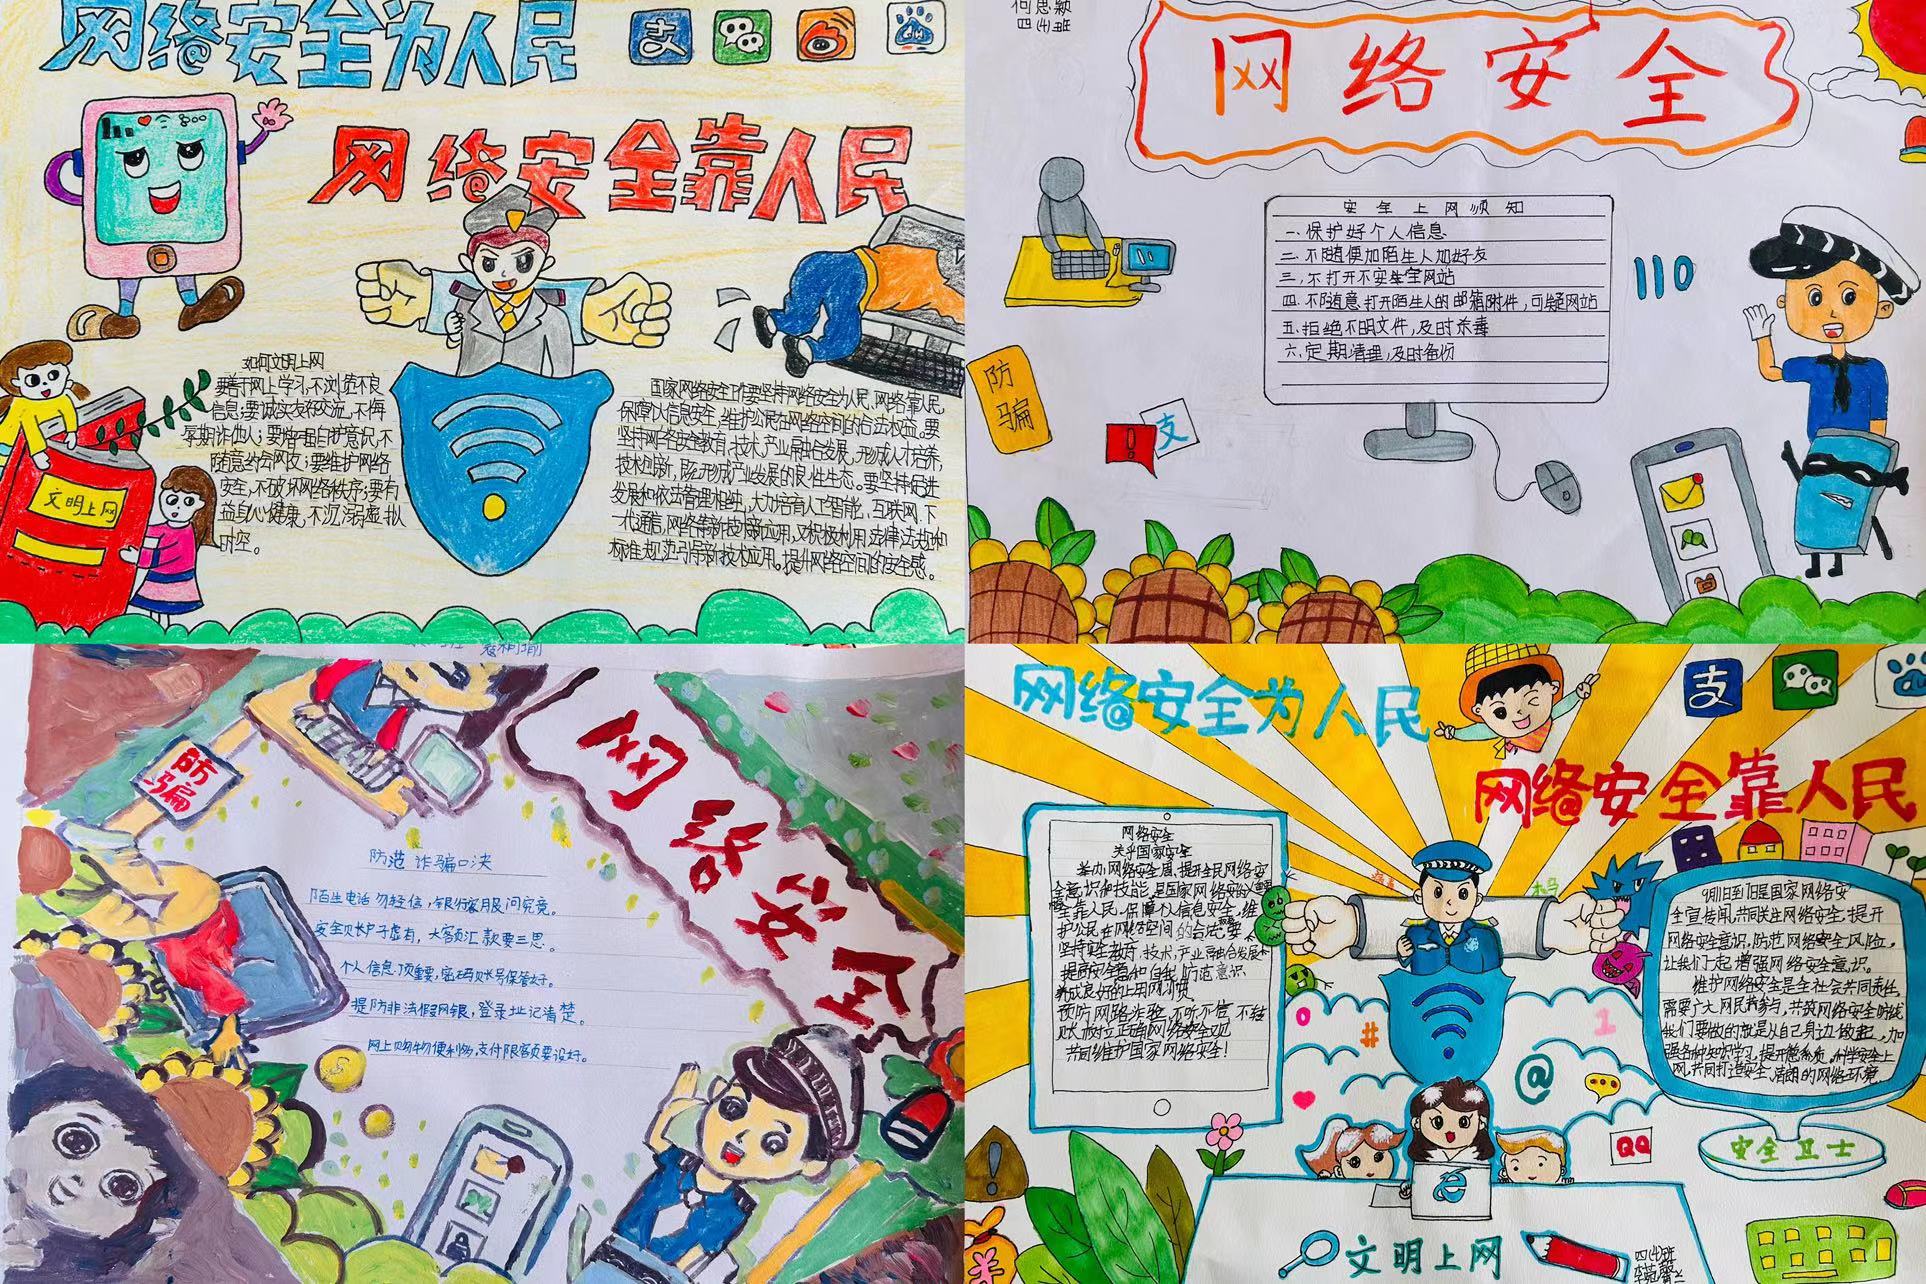 网络安全为人民
支
du
网络安全靠人民
如何文明上网
要善于网上学习,不浏览不良
信息;要诚实友好交流,不侮
辱欺诈他人;要增强自护意识,不
随意约会网友;要维护网络
安全,不破坏网络秩序;要有
益身心健康,不沉溺虚拟
时空。
文明上网
国家网络安全工作要坚持网络安全为人民、网络靠人民,
保障个人信息安全,维护公民在网络空间的合法权益。要
坚持网络安全教育,技术,产业融合发展,形成人才培养,
技术创新,产业发展的良性生态。要坚持促进
发展和依法管理相统,大力培育人工智能,互联网,下
一代通信,网络等新技术新应用,又积极利用法律法规和
标准规范引导新技术应用。提升网络空间的安全感。
何思颖
四(4)班
网络安全
安全上网须知
一、保护好个人信息
二、不随便加陌生人加好友
三、不打开不安全网站
四、不随意打开陌生人的邮箱附件,可疑网站
五、拒绝不明文件,及时杀毒
六、定期清理,及时备份
110
防骗
!
支
网络安全
防骗
防范诈骗口决
陌生电话勿轻信,银行客服问究竟。
安全账户子虚有,大客项汇款要三思。
个人信息顶重要,密码账号保管好。
提防非法假网银,登录址记清楚。
网上购物便利多,支付限客页要设好。
网络安全为人民
支
网络安全靠人民
网络安全
关乎国家安全
举办网络安全周,提升全民网络安
全意识和技能,是国家网络安
全靠人民,保障个人信息安全,维
护公民在网络空间的合法
坚持安全教育,技术,产业融合发展
提高安全和自我防范意识
养成良好的上用网习惯。
预防网路诈骗,不听不信,不转
账,树立正确网络安全观
共同维护国家网络安全!
病毒
木马
是国家网络安
全宣传周,共同关注网络安全,提升
网络安全意识,防范网络安全风险,
让我们一起增强网络安全意识。
维护网络安全是全社会共同责任,
需要广大网民参与,共筑网络安全防线
我们要做的就是从自己身边做起,加
强各种知识学习,提升,科学安全上
网,共同打造安全,清朗的网络环境。
安全卫士
0
#
@
1
QQ
e
文明上网
四(4)班